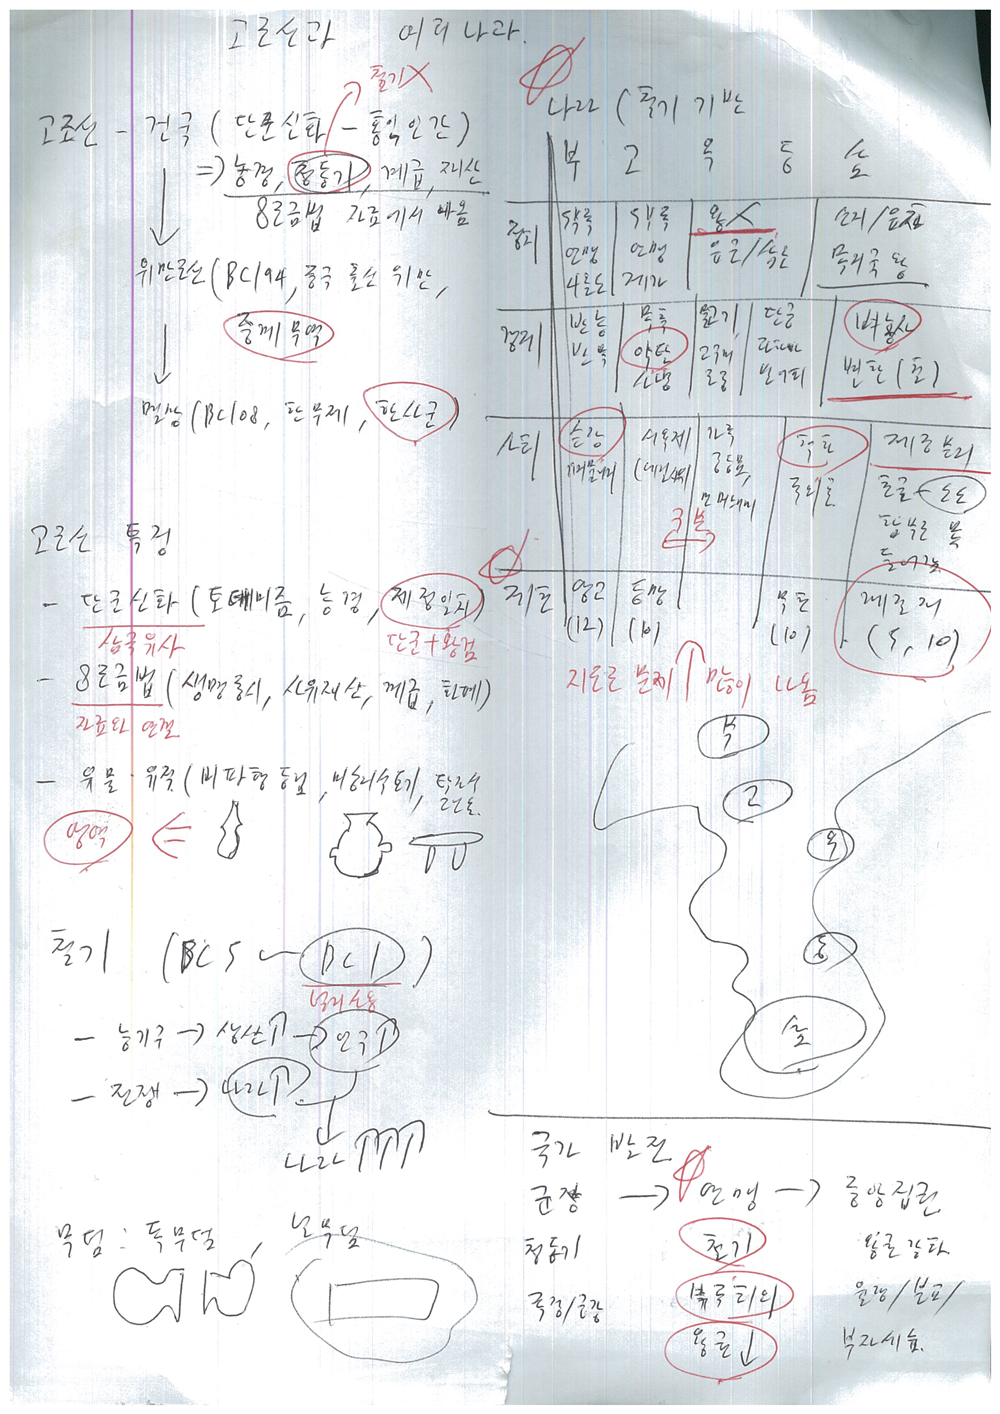 고조선과 여러나라.
고조선 - 건국 ( 단군신화 - 홍익인간 )
철기X
=> 농경, 청동기, 계급, 재산
8조금법 자료에서 배움
위만조선 (BC194, 중국 출신 위만,
중계무역
멸망 (BC108, 한무제, 한사군)
고조선 특징
- 단군신화 (토테미즘, 농경, 제정일치)
삼국유사
단군+왕검
- 8조금법 (생명중시, 사유재산, 계급, 화폐)
자료와 연결
- 유물·유적 (비파형동검, 미송리식토기, 탁자식
고인돌.
영역
철기 (BC5 ~ BC1)
널리 사용
- 농기구 → 생산↑ → 인구↑
- 전쟁 → 나라↑
나라↑↑↑
무덤 : 독무덤, 널무덤
나라 (철기 기반
부 고 옥 동 삼
정치
5부족 연맹 4출도
5부족 연맹 제가
왕X
읍군/삼로
신지/읍차
목지국 왕
경제
반농 반목
목축 약탈
물고기,
소금
단궁
과하마
반어피
벼농사
변한(철)
사회
순장
서옥제
(데릴사위)
가족
공동묘,
민며느리
책화
족외혼
제정분리
천군 - 소도
구분
제천
영고
(12)
동맹
(10)
무천
(10)
계절제
(5, 10)
지도로 문제 많이 나옴
부
고
옥
동
삼
국가 발전
군장 → 연맹 → 중앙집권
청동기 철기 왕권강화
족장/군장 부족회의 율령/불교/
왕권↓ 부자세습.